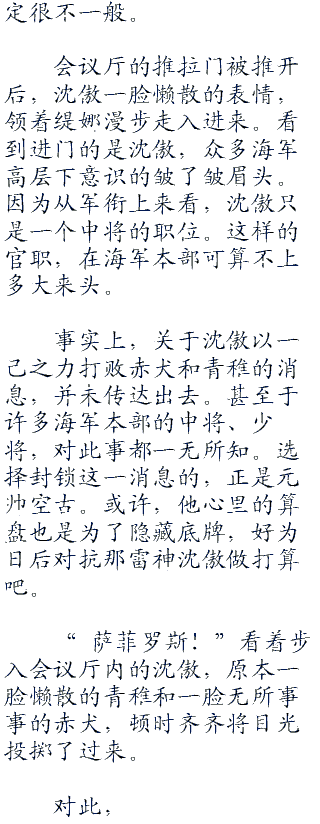 定很不一般。
会议厅的推拉门被推开
后，沈傲一脸懒散的表情，
领着缇娜漫步走入进来。看
到进门的是沈傲，众多海军
高层下意识的皱了皱眉头。
因为从军衔上来看，沈傲只
是一个中将的职位。这样的
官职，在海军本部可算不上
多大来头。
事实上，关于沈傲以一
己之力打败赤犬和青稚的消
息，并未传达出去。甚至于
许多海军本部的中将、少
将，对此事都一无所知。选
择封锁这一消息的，正是元
帅空古。或许，他心里的算
盘也是为了隐藏底牌，好为
日后对抗那雷神沈傲做打算
吧。
“萨菲罗斯！”看着步
入会议厅内的沈傲，原本一
脸懒散的青稚和一脸无所事
事的赤犬，顿时齐齐将目光
投掷了过来。
对此，